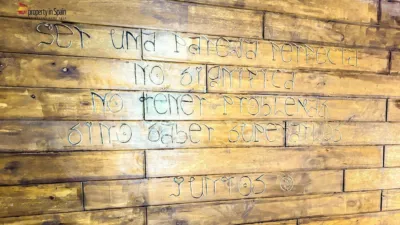 property in Spain
Ser una pareja perfecta
no significa
no tener problemas
sino saber superarlos
juntos